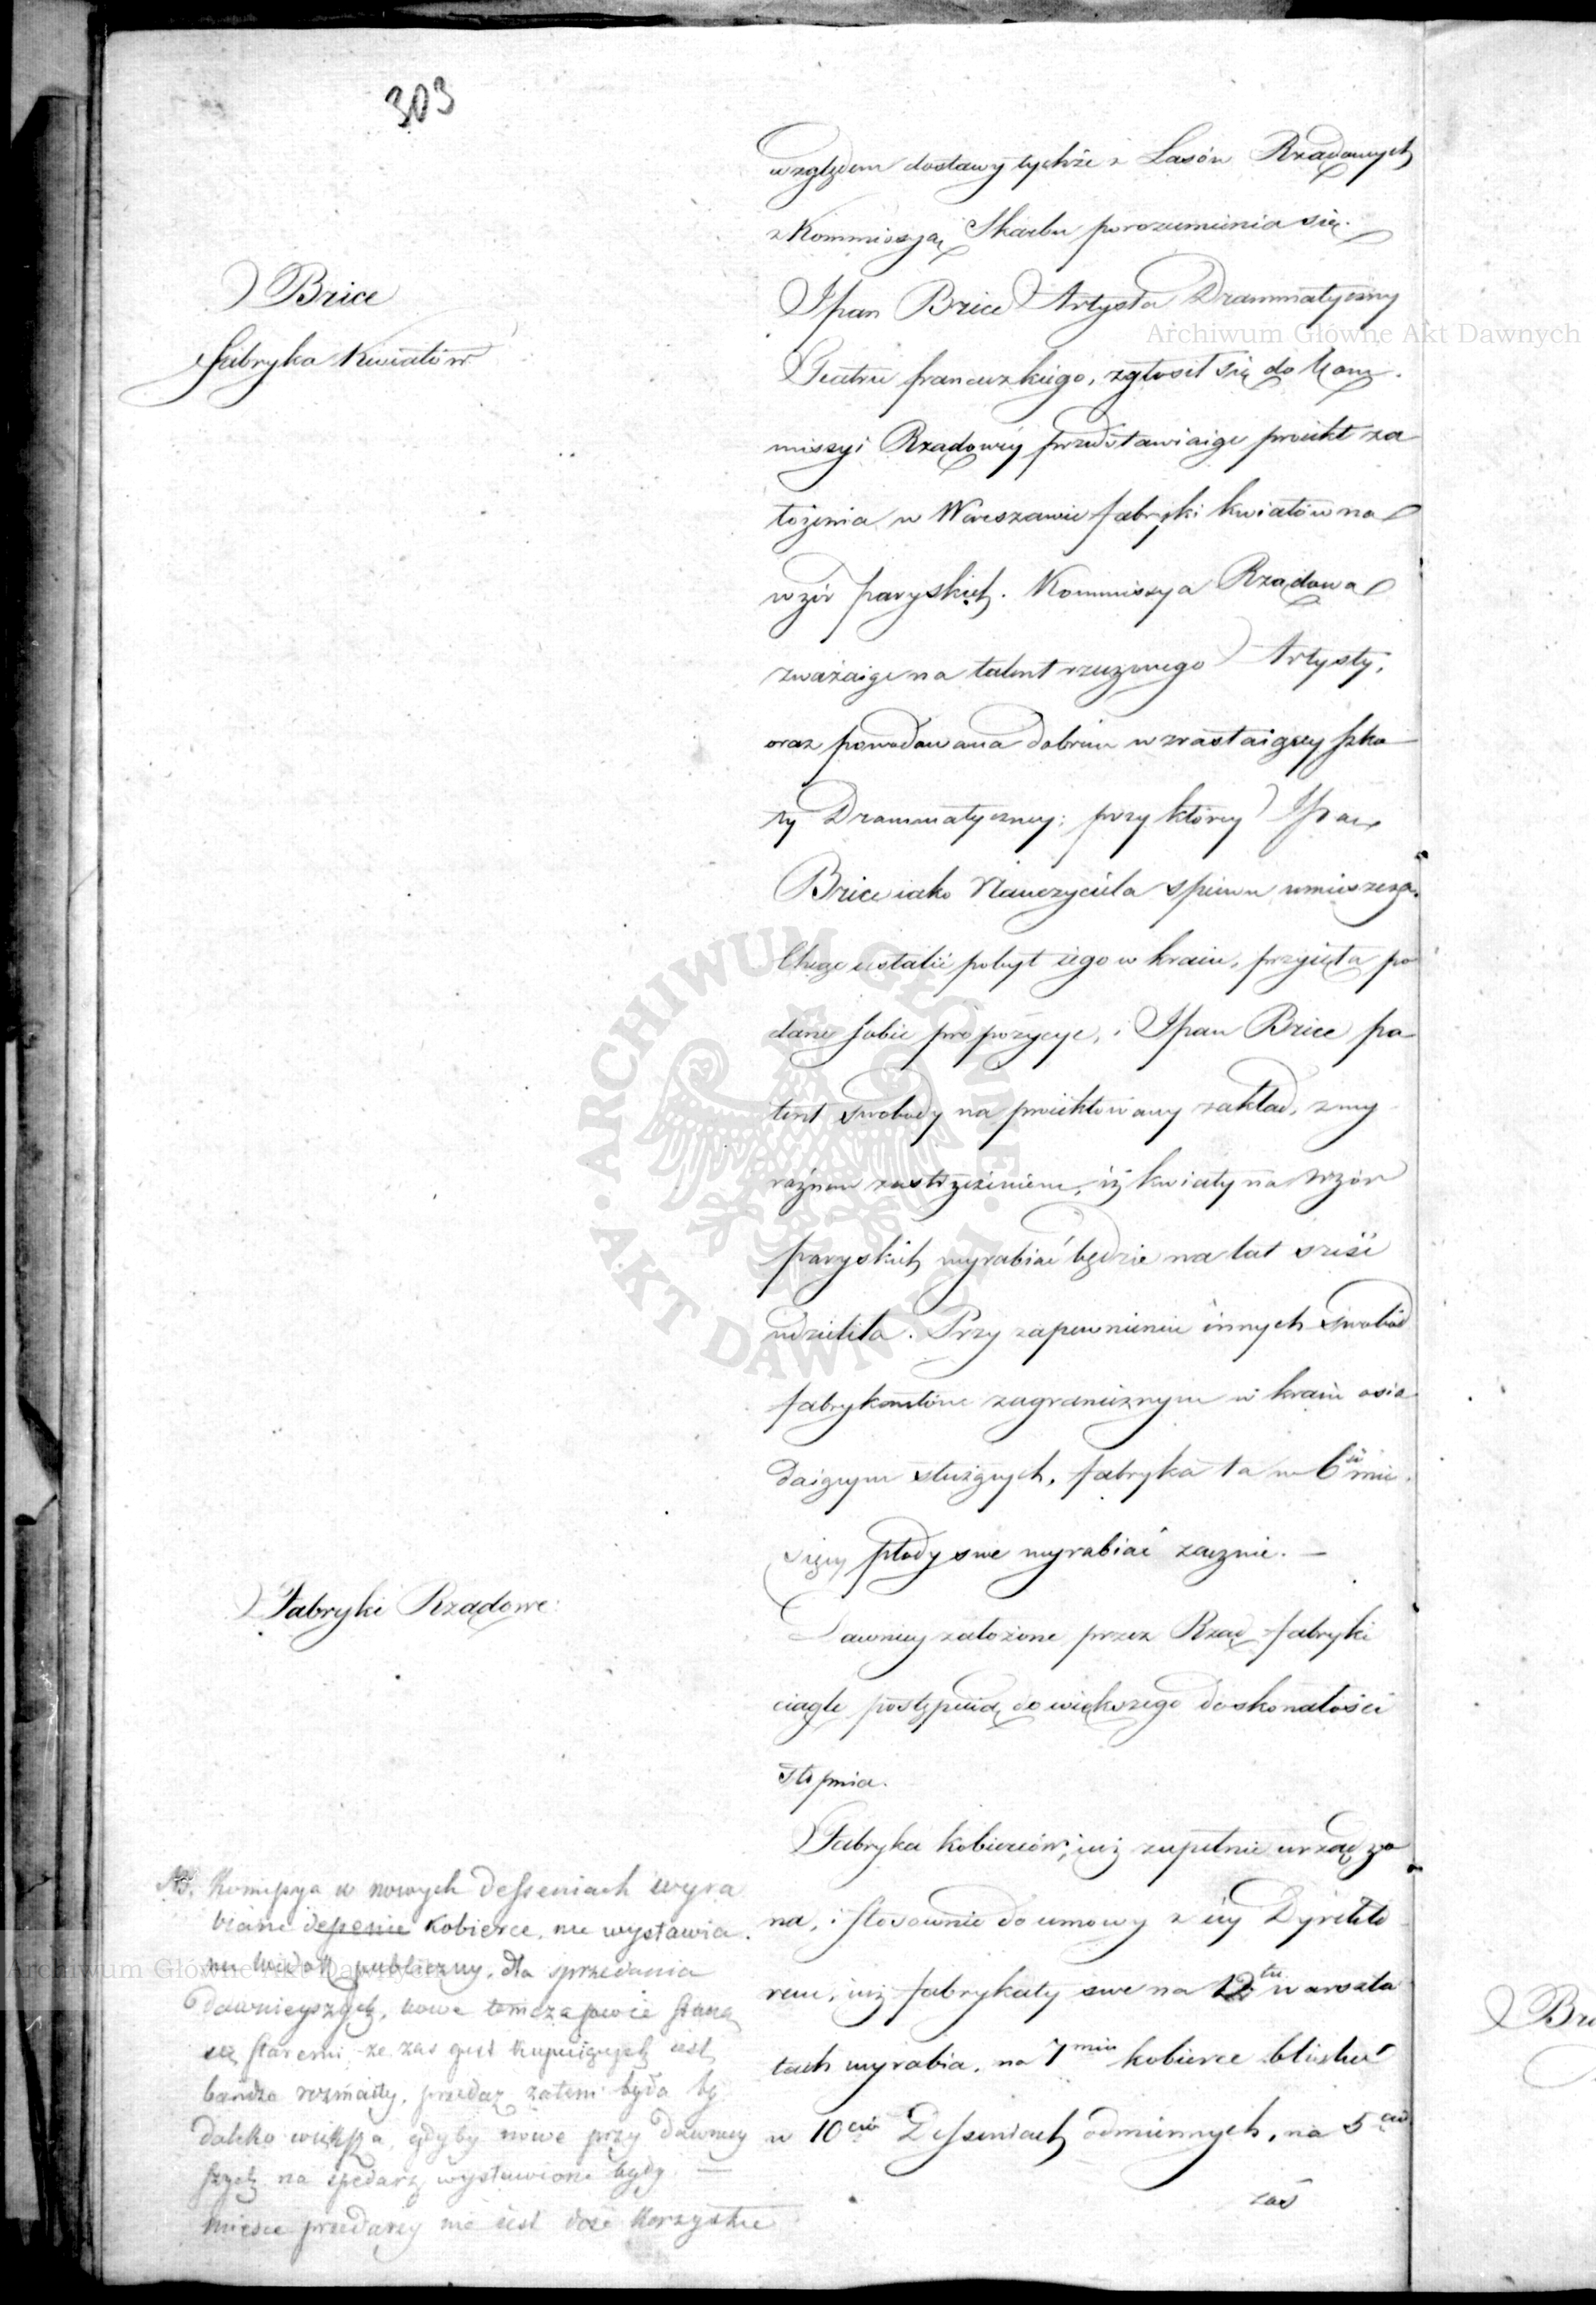 303
względem dostawy tychże z Lasów Rządowych
z Kommissyą Skarbu porozumienia się.
Brice
Fabryka Kwiatów
JPan Brice Artysta Drammatyczny
Teatru francuzkiego, zgłosił się do Kom-
missyi Rządowey przedstawiaiąc proiekt za
łożenia w Warszawie fabryki kwiatów na
wzór paryskich. Kommissya Rządowa
zważaiąc na talent rzeczonego Artysty,
oraz powodowana dobrem wzrastaiącey szko
ły Drammatyczney; przy którey JPana
Brice iako Nauczyciela spiewu umieszcza.
Chcąc ustalić pobyt iego w kraiu, przyięła po
dane sobie propozycye, i JPan Brice pa
tent swobody na proiektowany zakład, z wy
raźnem zastrzeżeniem, iż kwiaty na wzór
paryskich wyrabiać będzie na lat sześć
udzieliła. Przy zapewnieniu innych swobód
fabrykantom zagranicznym w kraiu osia
daiącym służących, fabryka ta w 6ść mie-
sięcy płody swe wyrabiać zacznie. —
Fabryki Rządowe:
Dawniey założone przez Rząd fabryki
ciągle postępuią do większego doskonałości
stopnia.
Fabryka kobierców, iuż zupełnie urządzo
na, i stosownie do umowy z iey Dyrekto
rem, iuż fabrykaty swe na 12tu warszta
tach wyrabia, na 7miu kobierce blisko
w 10ciu Desseniach odmiennych, na 5ciu
zaś
NB. Komissya w nowych desseniach wyra
biane dessenie Kobierce, nie wystawia
na widok publiczny, dla sprzedania
dawnieyszych, nowe tem czasowie staną
się staremi, ze zas gust kupuiących iest
bardzo rozmaity, przedaz zatem była by
daleko większa, gdyby nowe przy dawniey
szych na spedarz wystawione były. —
mieisce przedarzy nie iest dosć korzystne
Archiwum Główne Akt Dawnych
ARCHIWUM GŁÓWNE AKT DAWNYCH
Archiwum Główne Akt Dawnych